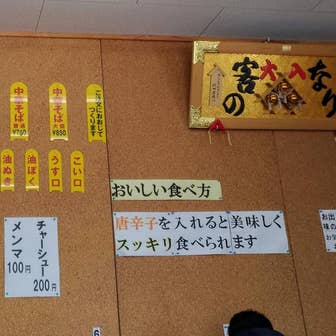 中華そば 普通 ¥750
中華そば 大盛 ¥850
ご注文におおじて
つくります
油ぬき
油ぽく
うす口
こい口
おいしい食べ方
唐辛子を入れると美味しく
スッキリ食べられます
チャーシュー
200円
メンマ
100円
大入
客の
なり
お出
味の